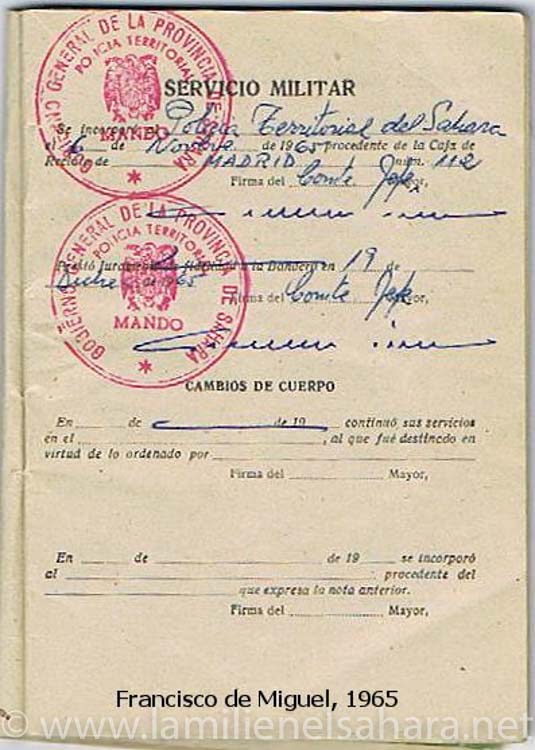 GOBIERNO GENERAL DE LA PROVINCIA DE SAHARA
POLICIA TERRITORIAL
MANDO
SERVICIO MILITAR
Se incorporó Policia Territorial del Sahara
el 6 de Novbre de 1965 procedente de la Caja de
Recluta de MADRID núm. 112
Firma del Comte Jefe Mayor,
GOBIERNO GENERAL DE LA PROVINCIA DE SAHARA
POLICIA TERRITORIAL
MANDO
Prestó Juramento de fidelidad a la Bandera en 19 de
Dicbre de 1965
Firma del Comte Jefe Mayor,
CAMBIOS DE CUERPO
En de de 19 continuó sus servicios
en el , al que fué destinado en
virtud de lo ordenado por
Firma del Mayor,
En de de 19 se incorporó
al procedente del
que expresa la nota anterior.
Firma del Mayor,
Francisco de Miguel, 1965
www.lamilienelsahara.net